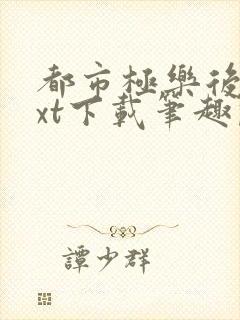 都市極樂後
xt下載筆趣
譚少群